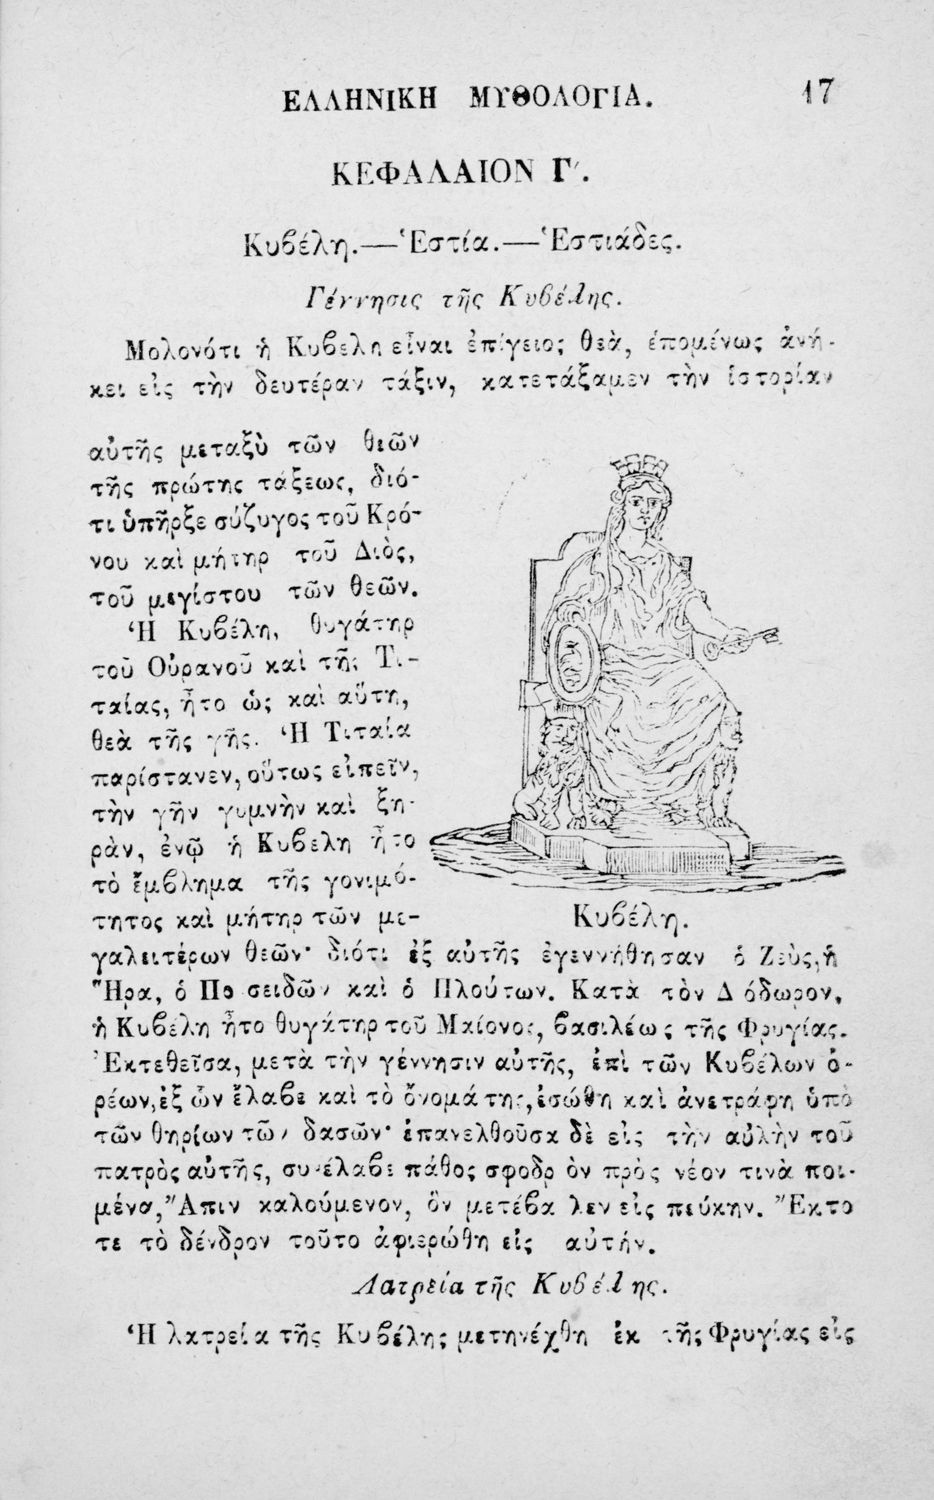 ΕΛΛΗΝΙΚΗ ΜΥΘΟΛΟΓΙΑ. 17
ΚΕΦΑΛΑΙΟΝ Γ΄.
Κυβέλη.—Ἑστία.—Ἑστιάδες.
Γέννησις τῆς Κυβέλης.
Μολονότι ἡ Κυβέλη εἶναι ἐπίγειος θεὰ, ἑπομένως ἀνή-
κει εἰς τὴν δευτέραν τάξιν, κατετάξαμεν τὴν ἱστορίαν
αὐτῆς μεταξὺ τῶν θεῶν
τῆς πρώτης τάξεως, διό-
τι ὑπῆρξε σύζυγος τοῦ Κρό-
νου καὶ μήτηρ τοῦ Διὸς,
τοῦ μεγίστου τῶν θεῶν.
Ἡ Κυβέλη, θυγάτηρ
τοῦ Οὐρανοῦ καὶ τῆς Τι-
ταίας, ἦτο ὡς καὶ αὕτη,
θεὰ τῆς γῆς. Ἡ Τιταία
παρίστανεν, οὕτως εἰπεῖν,
τὴν γῆν γυμνὴν καὶ ξη-
ρὰν, ἐνῷ ἡ Κυβέλη ἦτο
τὸ ἔμβλημα τῆς γονιμό-
τητος καὶ μήτηρ τῶν με-
Κυβέλη.
γαλειτέρων θεῶν· διότι ἐξ αὐτῆς ἐγεννήθησαν ὁ Ζεὺς, ἡ
Ἥρα, ὁ Ποσειδῶν καὶ ὁ Πλούτων. Κατὰ τὸν Διόδωρον,
ἡ Κυβέλη ἦτο θυγάτηρ τοῦ Μαίονος, βασιλέως τῆς Φρυγίας.
Ἐκτεθεῖσα, μετὰ τὴν γέννησιν αὐτῆς, ἐπὶ τῶν Κυβέλων ὀ-
ρέων, ἐξ ὧν ἔλαβε καὶ τὸ ὄνομά της, ἐσώθη καὶ ἀνετράφη ὑπὸ
τῶν θηρίων τῶν δασῶν· ἐπανελθοῦσα δὲ εἰς τὴν αὐλὴν τοῦ
πατρὸς αὐτῆς, συνέλαβε πάθος σφοδρὸν πρὸς νέον τινὰ ποι-
μένα, Ἄπιν καλούμενον, ὃν μετέβαλεν εἰς πεύκην. Ἔκτο
τε τὸ δένδρον τοῦτο ἀφιερώθη εἰς αὐτήν.
Λατρεία τῆς Κυβέλης.
Ἡ λατρεία τῆς Κυβέλης μετηνέχθη ἐκ τῆς Φρυγίας εἰς